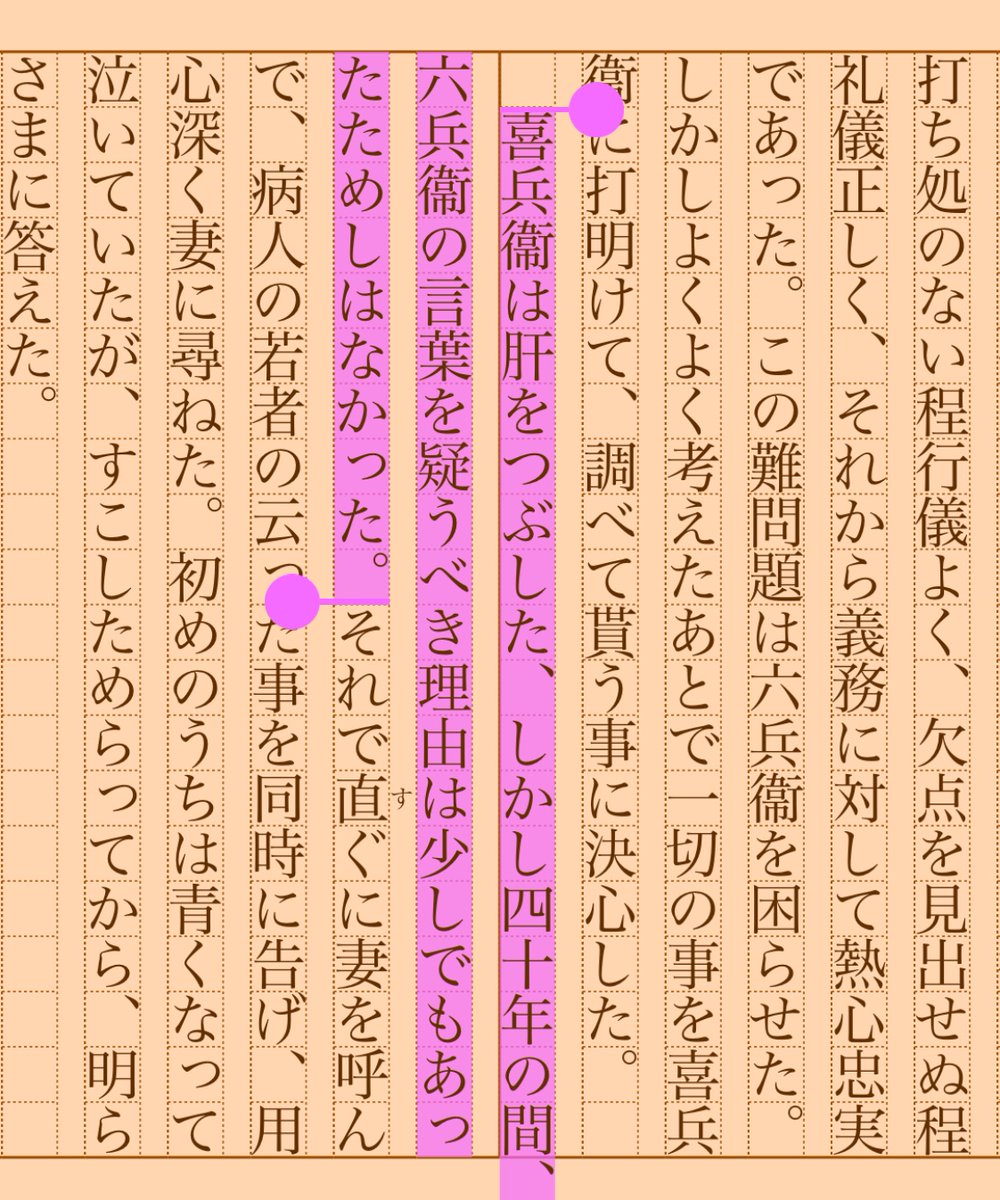 打ち処のない程行儀よく、欠点を見出せぬ程
礼儀正しく、それから義務に対して熱心忠実
であった。この難問題は六兵衞を困らせた。
しかしよくよく考えたあとで一切の事を喜兵
衞に打明けて、調べて貰う事に決心した。
喜兵衞は肝をつぶした、しかし四十年の間、
六兵衞の言葉を疑うべき理由は少しでもあっ
たためしはなかった。それで直ぐに妻を呼ん
す
で、病人の若者の云った事を同時に告げ、用
心深く妻に尋ねた。初めのうちは青くなって
泣いていたが、すこしためらってから、明ら
さまに答えた。